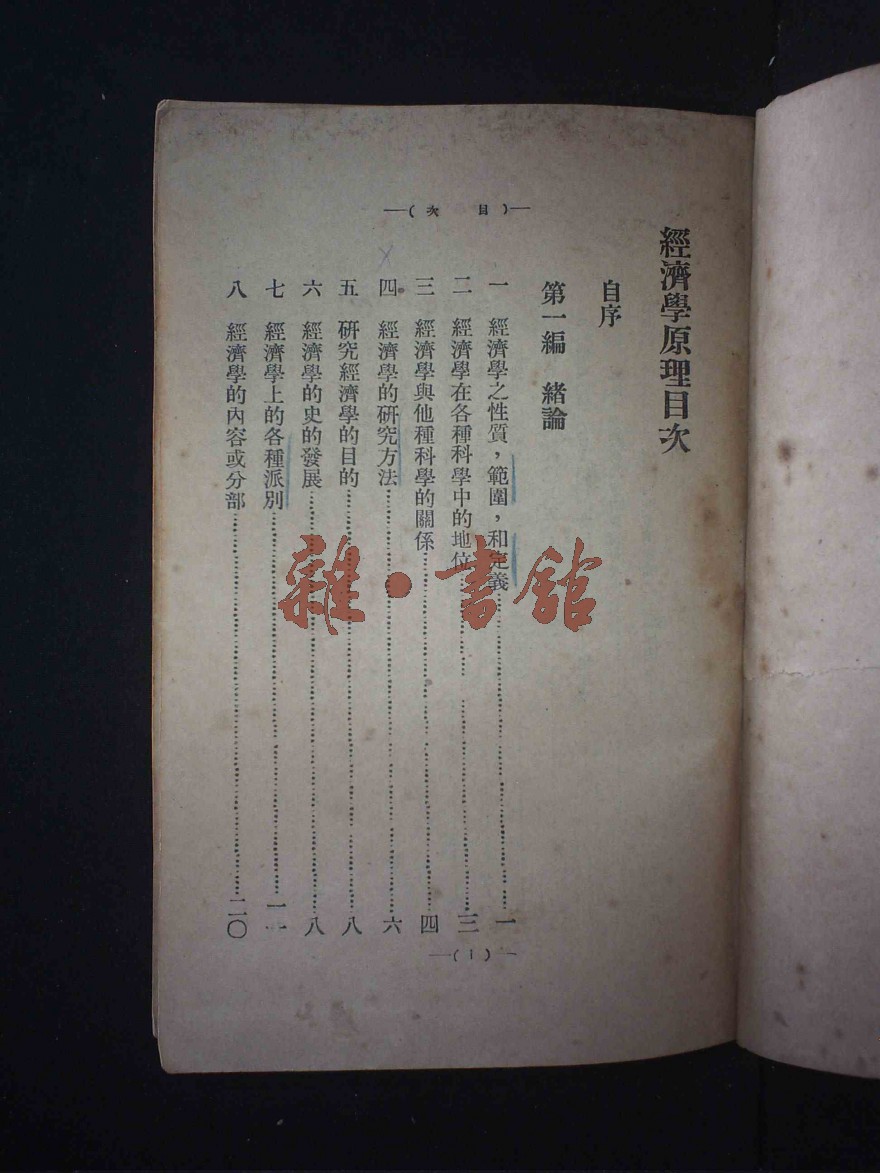 經濟學原理目次
自序
第一編　緒論
一　經濟學之性質，範圍，和定義……一
二　經濟學在各種科學中的地位……三
三　經濟學與他種科學的關係……四
四　經濟學的研究方法……六
五　研究經濟學的目的……八
六　經濟學的史的發展……八
七　經濟學上的各種派別……一一
八　經濟學的內容或分部……二〇
—(目　次)—
—(1)—
雜・書館